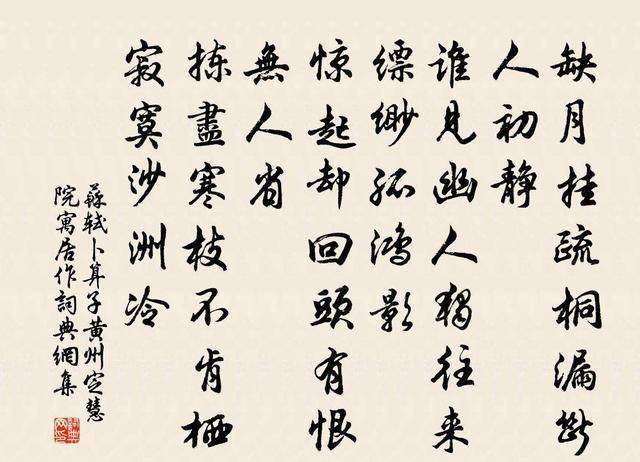 缺月挂疏桐漏斷
人初静
谁見幽人獨往来
缥缈孤鴻影
惊起却回頭有恨
無人省
拣盡寒枝不肯栖
寂寞沙洲冷
蘇轼卜算子黄州定慧
院寓居作詞典網集